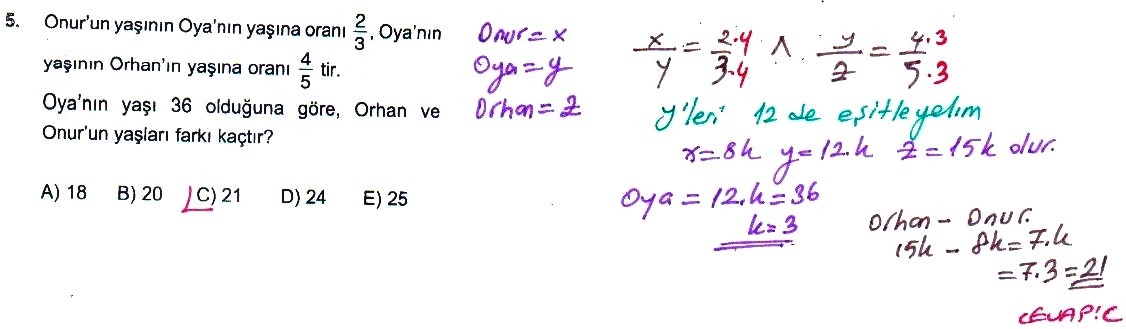 5. Onur'un yaşının Oya'nın yaşına oranı 2/3, Oya'nın
yaşının Orhan'ın yaşına oranı 4/5 tir.
Oya'nın yaşı 36 olduğuna göre, Orhan ve
Onur'un yaşları farkı kaçtır?
A) 18 B) 20 C) 21 D) 24 E) 25
Onur = x
Oya = y
Orhan = z
x/y = 2·4/3·4 ∧ y/z = 4·3/5·3
y'leri 12 de eşitleyelim
x=8k y=12.k z=15k olur.
Oya = 12.k=36
k=3
Orhan - Onur.
15k - 8k=7.k
=7.3=21
CEVAP:C